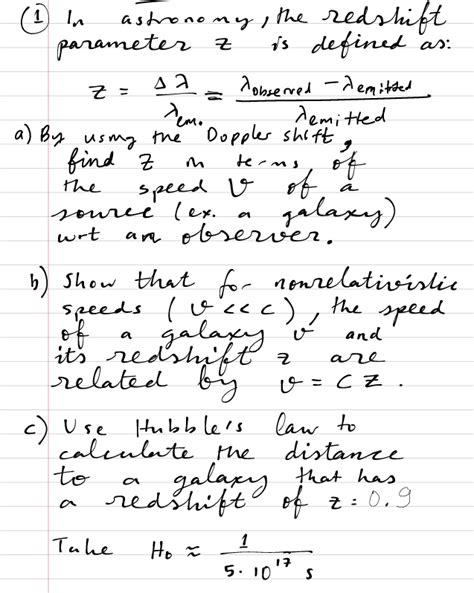 ① In astronomy, the redshift
parameter z is defined as:
z = Δλ / λem. = λobserved − λemitted / λemitted
a) By using the Doppler shift,
find z in terms of
the speed v of a
source (ex. a galaxy)
wrt an observer.
b) Show that for nonrelativistic
speeds (v << c), the speed
of a galaxy v and
its redshift z are
related by v = c z.
c) Use Hubble's law to
calculate the distance
to a galaxy that has
a redshift of z = 0.9
Take H₀ ≈ 1 / 5·10¹⁷ s